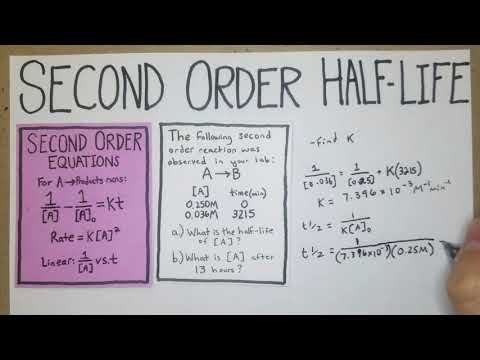 SECOND ORDER HALF-LIFE
SECOND ORDER
EQUATIONS
For A→Products rxns:
1/[A] - 1/[A]₀ = Kt
Rate = K[A]²
Linear: 1/[A] vs. t
The following second
order reaction was
observed in your lab:
A→B
[A] time(min)
0.250M 0
0.036M 3215
a.) What is the half-life
of [A]?
b.) What is [A] after
13 hours?
-Find K
1/[0.036] = 1/[0.25] + K(3215)
K = 7.396 x 10⁻³ M⁻¹min⁻¹
t 1/2 = 1/K[A]₀
t 1/2 = 1/(7.396x10⁻³)(0.25M)